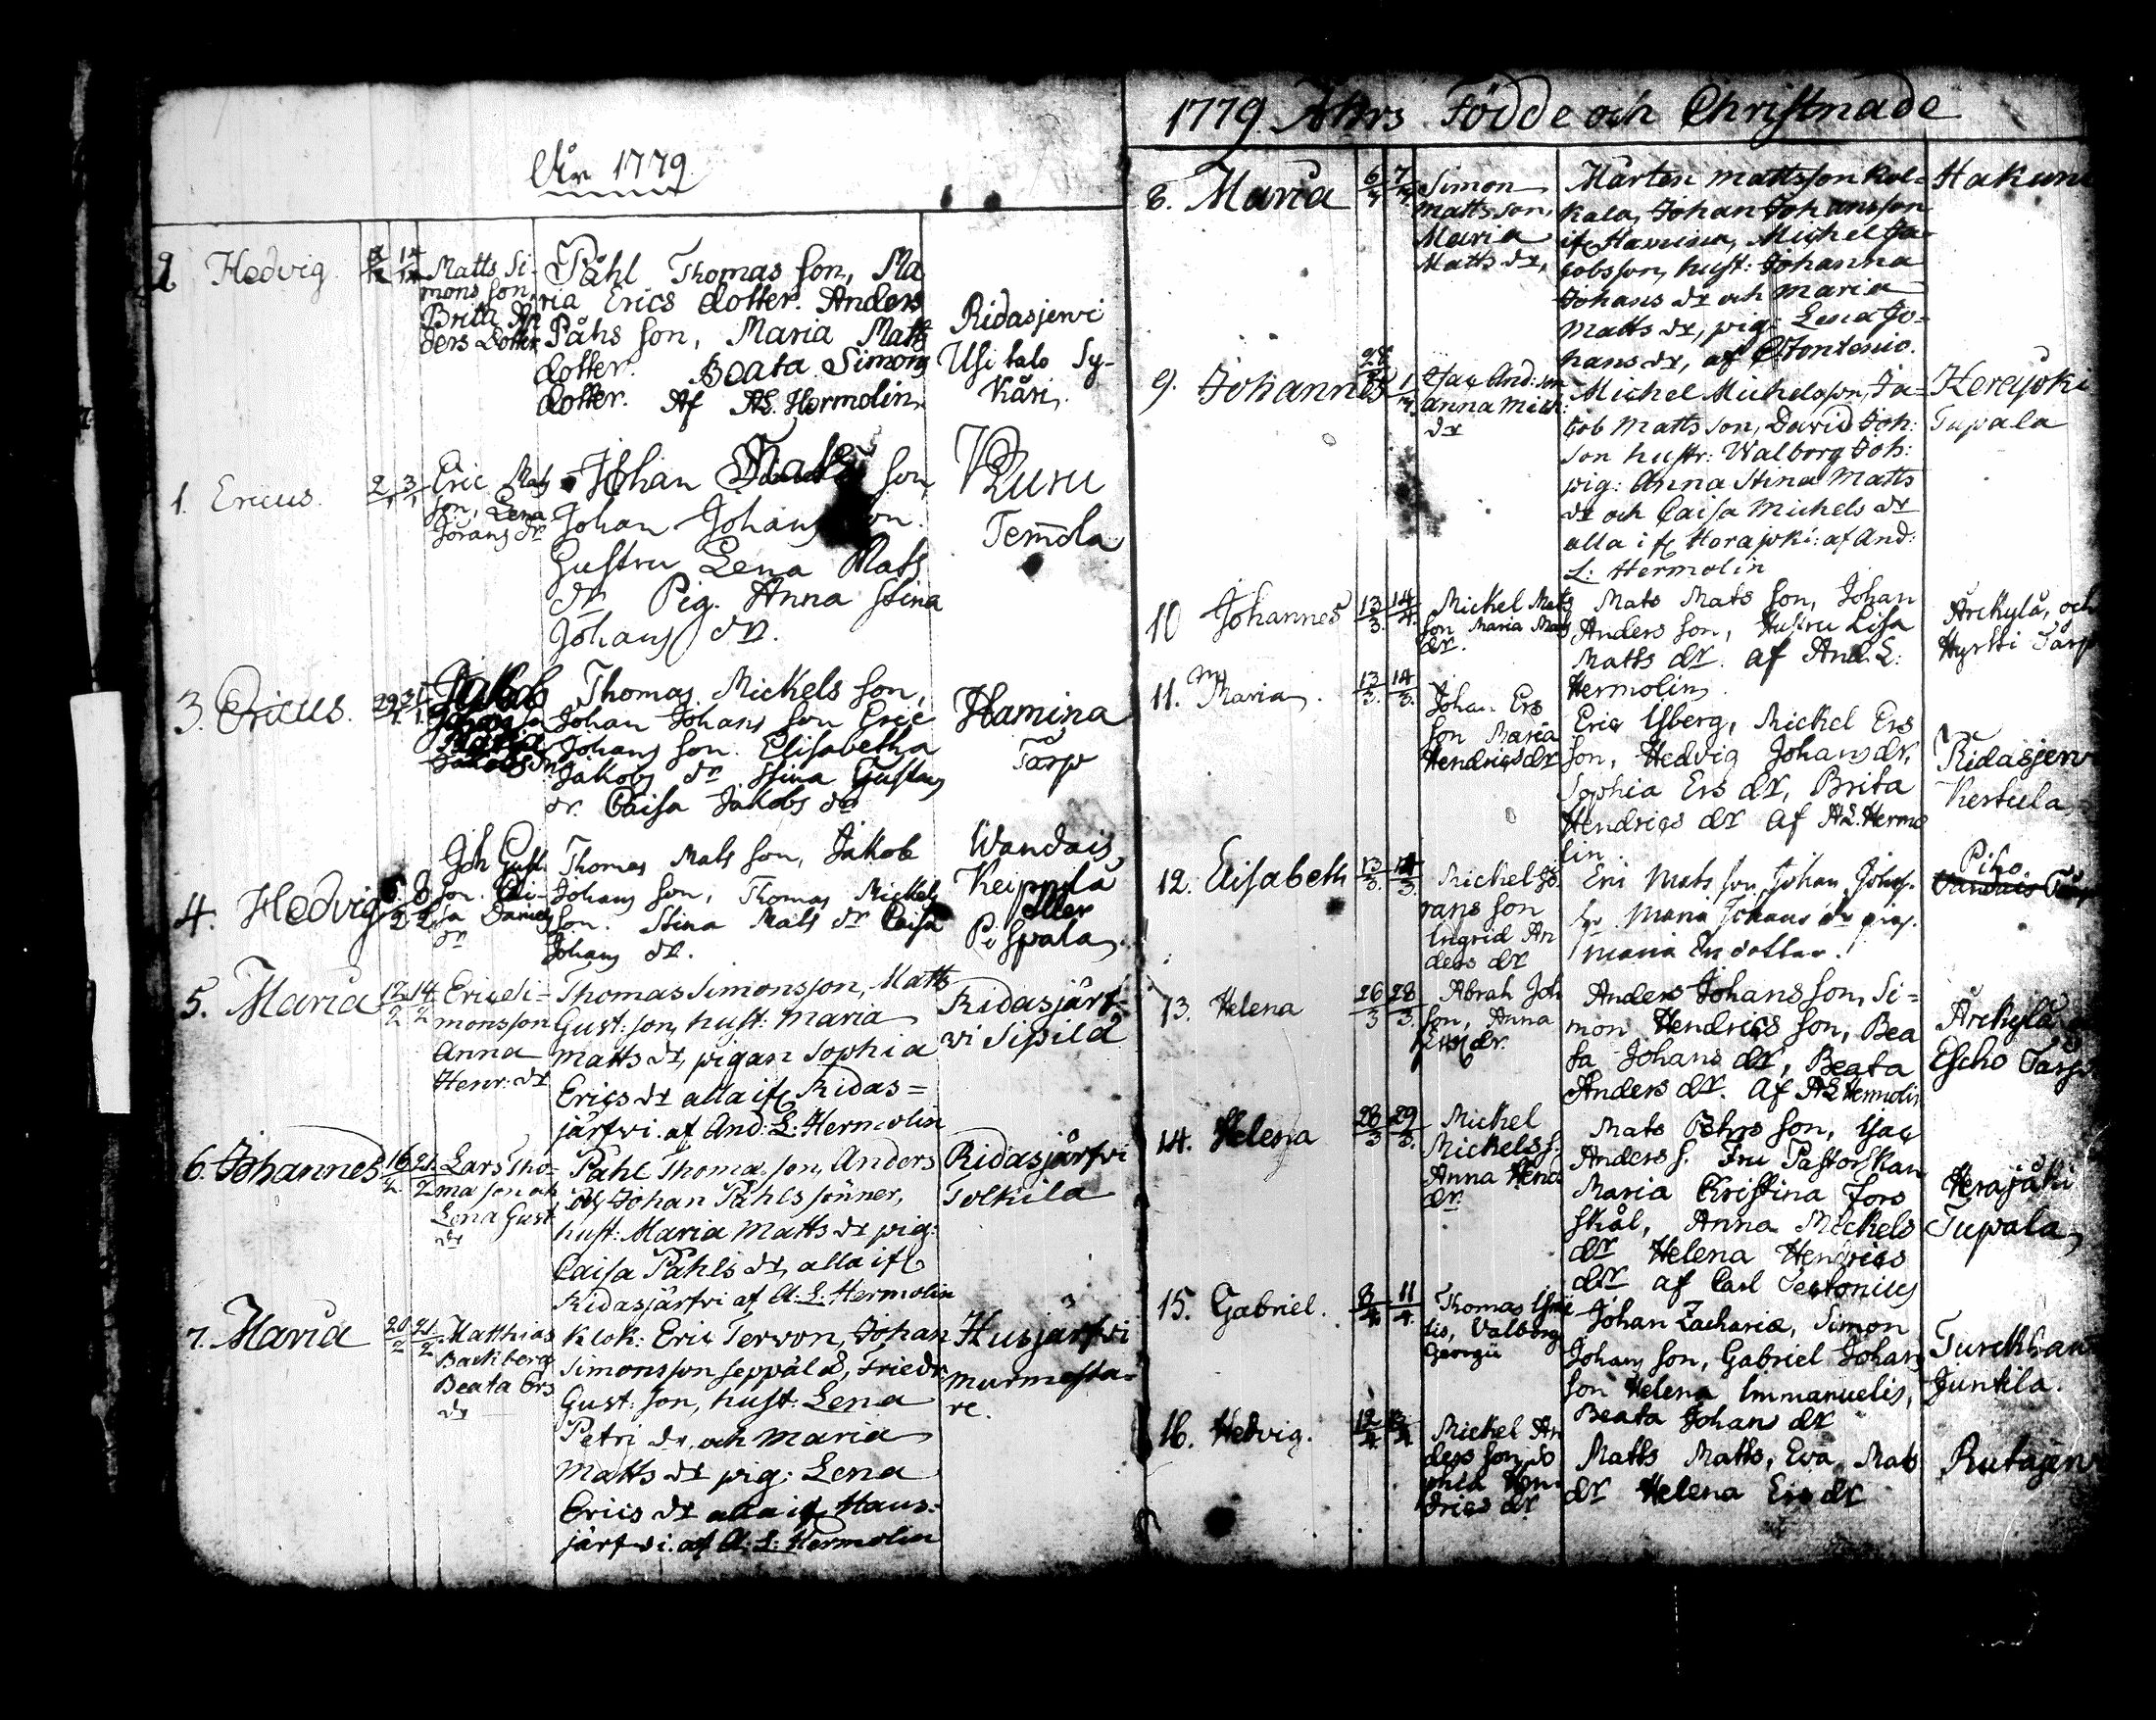 År 1779
2. Hedvig. 14 Matts Si-
mons son,
Brita An
ders Dotter
Påhl Thomas son, Ma
ria Erics dotter. Anders
Påhs son, Maria Matts
dotter. Beata Simons
dotter. Af AL. Hermolin
Ridasjervi
Usi talo Sy-
käri.
1. Ericus. 2/1 3/1 Eric Mats
son, Lena
Görans dr
Johan Matts son
Johan Johans son.
Hustru Lena Mats
dr Pig. Anna Stina
Johans dr.
Ruru
Tem̄ola
3. Ericus. 29/1 31/1 Jakob
Johans son
Maria
Jakobs dr
Thomas Mickels son,
Johan Johans son Eric
Johans son. Elisabetha
Jakobs dr Stina Gustavs
dr. Caisa Jakobs dr
Hamina
Tårp
4. Hedvig 6/2 8/2 Joh Gust
son. Eli-
sa Daniels
dr
Thomas Mats son, Jakob
Johans son, Thomas Mickels
son. Stina Mats dr Caisa
Johans dr.
Wandais
Keippilä
eller
Pispala
5. Maria 12/2 14/2 Eric Si-
monsson
Anna
Henr: dr
Thomas Simonsson, Matts
Gust: son, hust: Maria
Matts dr, pigan Sophia
Erics dr alla ifr Ridas=
järfvi. af And: L: Hermolin
Ridasjärf-
vi Sipilä
6. Johannes 16/2 21/2 Lars Tho-
ma son och
Lena Gust
dr
Påhl Thomæ son, Anders
och Johan Påhls sönner,
hust: Maria Matts dr pig:
Caisa Påhls dr, alla ifr
Ridasjärfvi af A: L: Hermolin
Ridasjärfvi
Tolkila
7. Maria 20/2 21/2 Matthias
Backberg
Beata Ers
dr
Klok: Eric Tervon, Johan
Simonsson Seppälä, Friedr
Gust: son, hust: Lena
Petri dr och Maria
Matts dr pig: Lena
Erics dr alla ifr Haus-
järfvi. af A: L: Hermolin
Husjärfvi
Murmesta-
re.
1779 Åhrs Födde och Christnade
8. Maria 6 7 Simon
Mattsson,
Maria
Matts dr,
Mårten Mattsson Kol-
kala, Johan Johansson
ifr Hamina, Michel Ja-
cobsson, hust: Johanna
Johans dr och Maria
Matts dr, pig: Lena Jo-
hans dr, af
Hakuni
9. Johannes 28 1/3 Isac And: son
Anna Mich:
dr
Michel Michelsson, Ja-
cob Matts son, David Joh:
son hustr: Walborg Joh:
pig: Anna Stina Matts
dr och Caisa Michels dr
alla ifr Herajoki: af And:
L: Hermolin
Herajoki
Tupala
10 Johannes 13/3. 14 Mickel Mats
son Maria Mats
dr.
Mats Mats son, Johan
Anders son, Hustru Lisa
Matts dr. af And. L:
Hermolin.
Årckylä, och
Hyrkki Tårp
11. Maria. 13/3. 14/3. Johan Ers
son Maria
Hendrics dr
Eric Isberg, Mickel Ers
son, Hedvig Johans dr,
Sophia Ers dr, Brita
Hendrics dr af AL. Hermo
lin.
Ridasjerv
Kertula
12. Elisabeth 13/3. 14/3. Mickel Jö
rans son
Ingrid An
ders dr
Eric Mats son, Johan Johs.
Maria Johans dr pig.
Maria Ers dotter.
Piho
13. Helena 26/3 28/3. Abrah Joh
son, Anna
Ers dr.
Anders Johans son, Si=
mon Hendrics son, Bea
ta Johans dr, Beata
Anders dr. Af AL Hermolin
Årckylä
Escho Tårp
14. Helena 28/3 29/3. Mickel
Mickels s.
Anna Hend
dr.
Mats Ehrs son, Isac
Anders s. Fru Pastorskan
Maria Kristina Fors
skål, Anna Mickels
dr Helena Hendrics
dr af Carl
Herajåki
Tupala
15. Gabriel. 8/4. 11/4. Thomas
Valborg
Georgii
Johan Zachariæ, Simon
Johans son, Gabriel Johans
son Helena Immanuelis,
Beata Johans dr
Turckhau
Juntila.
16. Hedvig. 12/4. Mickel An
ders son, So
phia Hen-
drics dr.
Matts Matts, Eva Mats
dr Helena Ers dr
Rutajerv